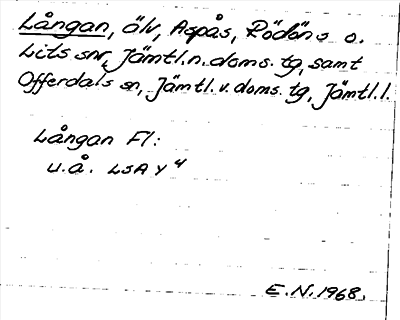 Långan, älv, Aspås, Rödöns o.
Lits snr, Jämtl.n.doms. tg, samt
Offerdals sn, Jämtl.v.doms. tg, Jämtl.l.
Långan Fl:
u.å. LSA Y 4
E.N.1968.